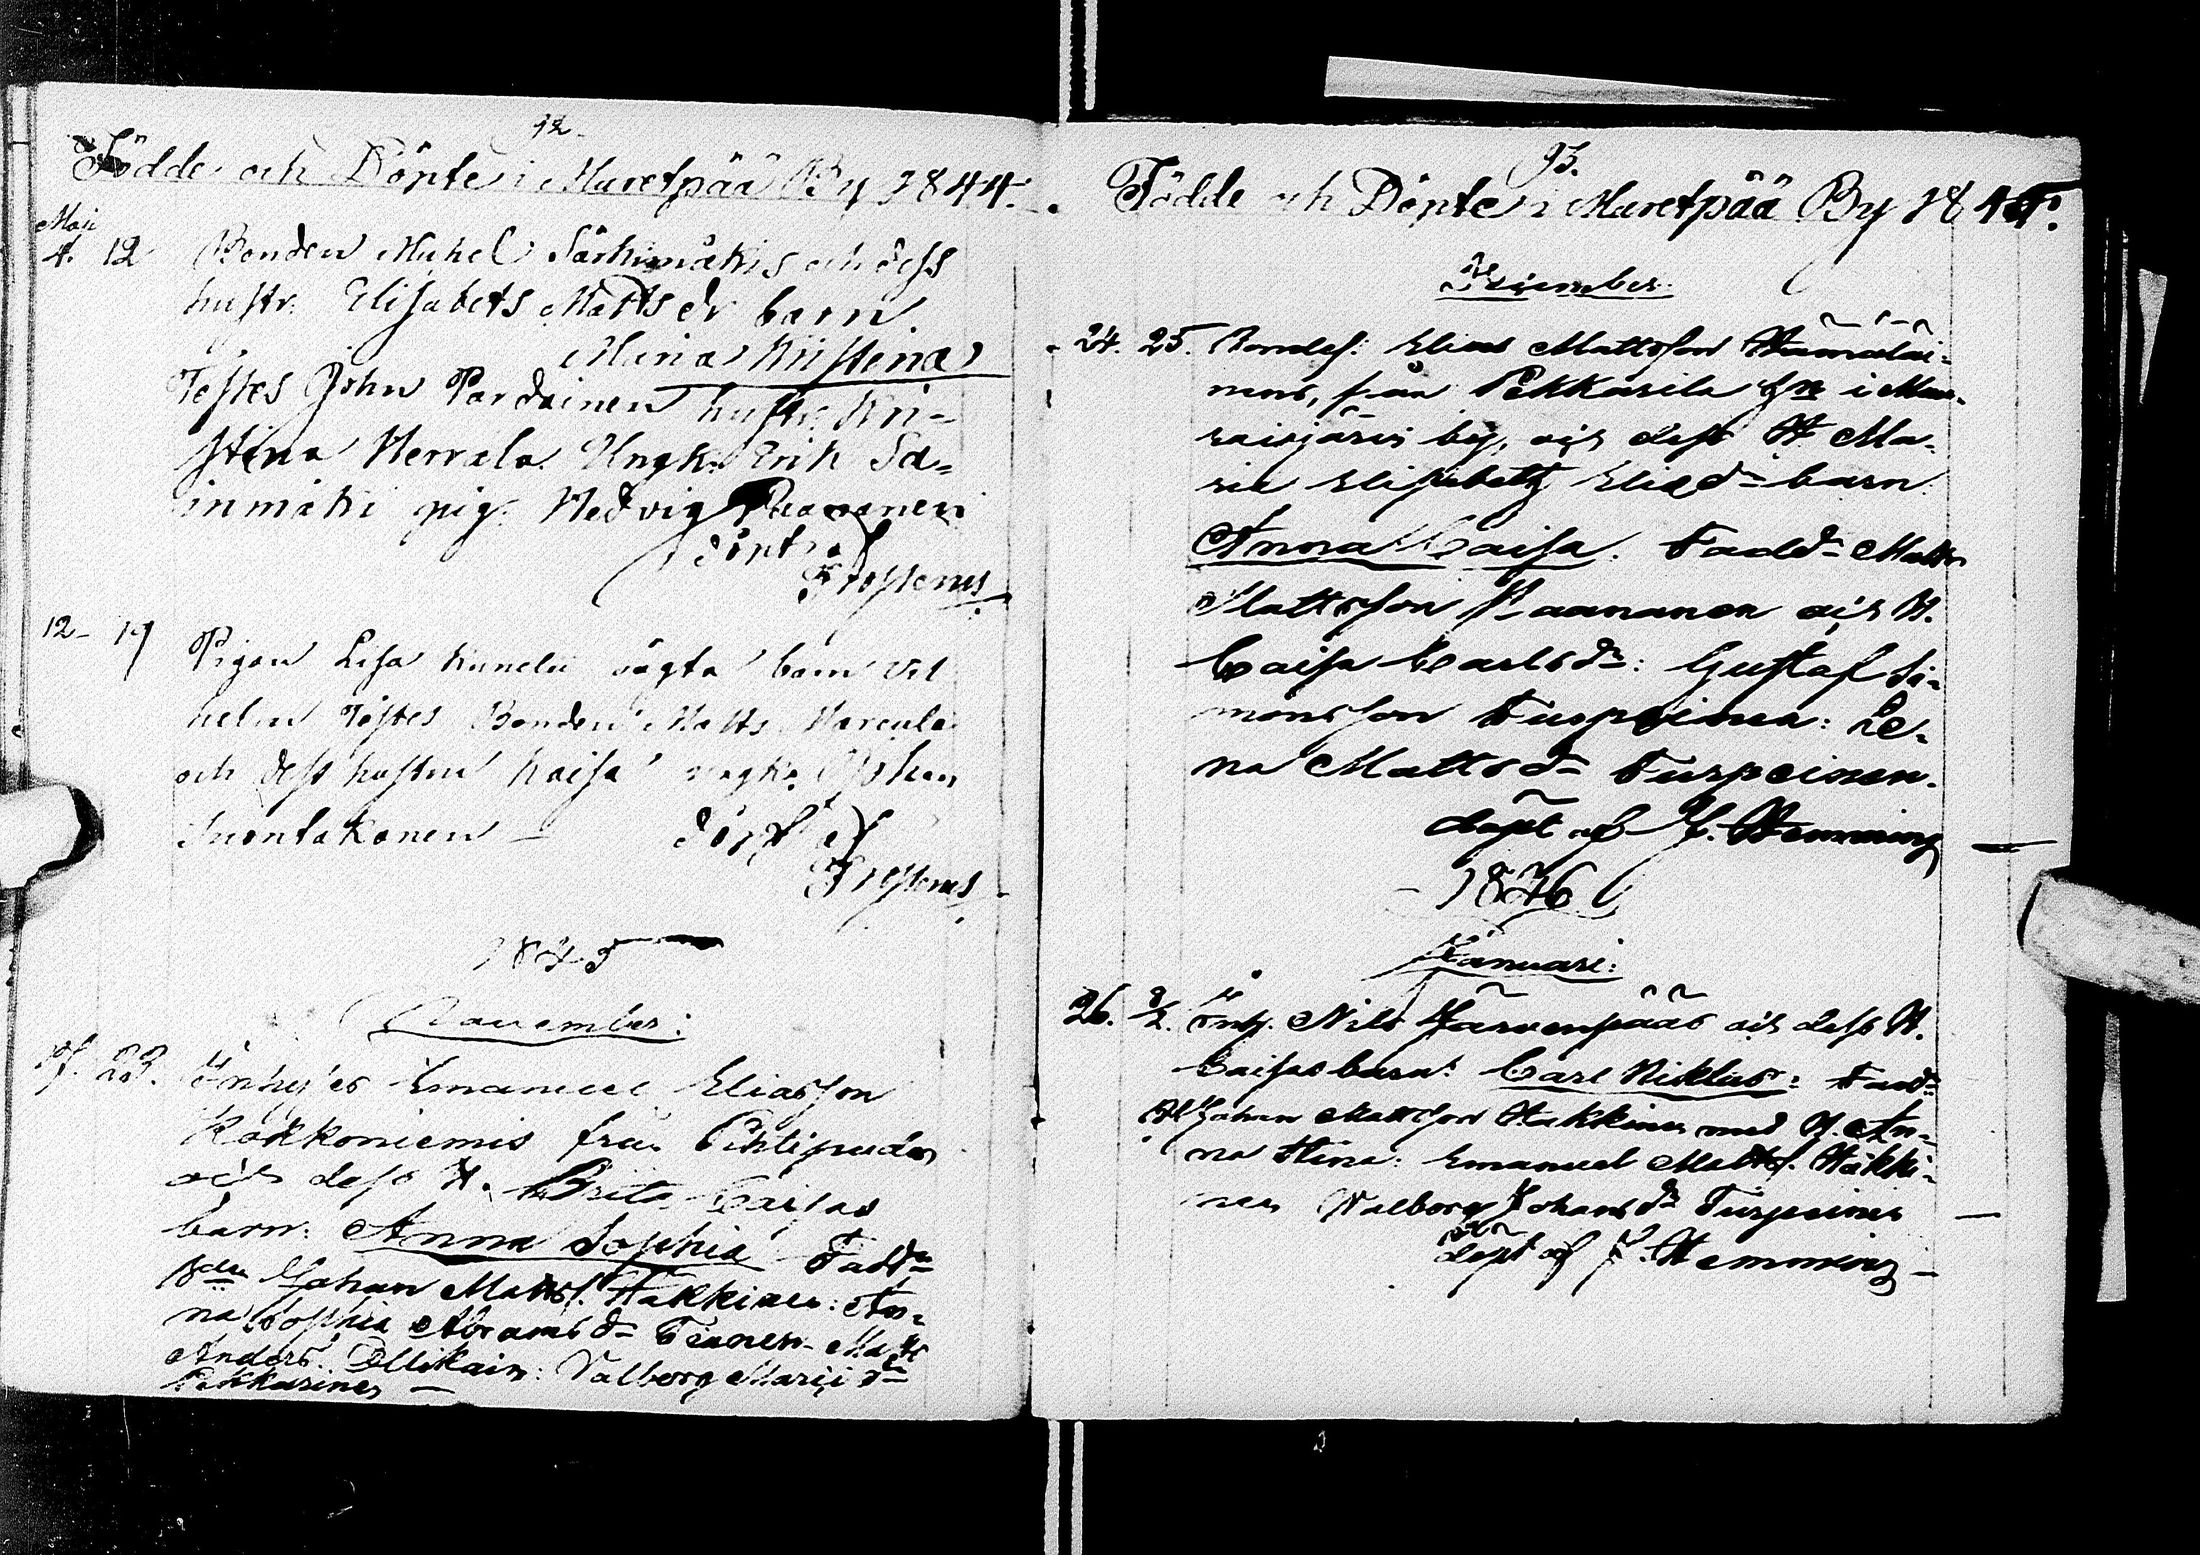 12.
Födde och Döpte i Muretpää By 1844.
Maji
4. 12 Bonden Mickel Särkimäkis och dess
hustr. Elisabets Matts dr barn
Maria Kristina
Testes John Pardainen hustr. Kri-
stina Herrala. Ungk. Erik Sa-
inmäki pig. Hedvig Paananen
döpt af
Frosterus
12 - 19 Pigan Lisa oägta barn Vil
helm Testes Bonden Matts Marcula
och dess hustru Kaisa ungk. Johan
Suontakanen - döpt af
Frosterus
1845
November:
23. Inhys'es Emanuel Eliasson
Kokkoniemis från Pihtipudas
och dess H. Brita Caisas
barn: Anna Sophia Fadd:
Bden Johan Matts. Hakkinen: An-
na Sophia Abrams d: Matts
Anders. Ollikain: Valborg Marii d:
Pekkarinen -
13.
Födde och Döpte i Muretpää By 1845.
December.
24. 25. Bondes: Elias Mattsson Hämäläi-
nens, från Pekkarila i Mu-
raisjärvi by, och dess H. Ma-
ria Elisabeth Eliæd: barn
Anna Caisa. Fadd: Matts
Mattsson Paananen och H.
Caisa Carlsdr: Gustaf Si-
monsson Turpeinen: Le-
na Mattsd: Turpeinen.
döpt af J. Hemming
- 1846
Januari:
26. 2/2. Inh. Nils Järvenpääs och dess H.
Caisas barn: Carl Niklas: Fadd:
Johan Mattsson Hakkinen med H. An-
na Stina: Emanuel Matts. Häkki-
nen Valborg Johans dr Turpeinen
döpt af J. Hemming -